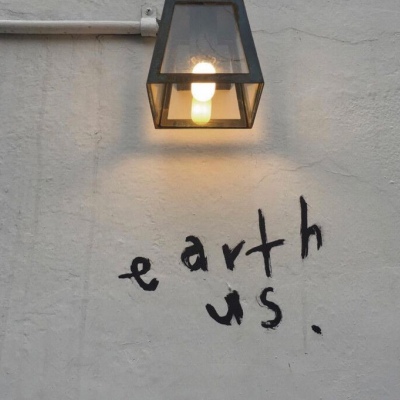 earth
us.